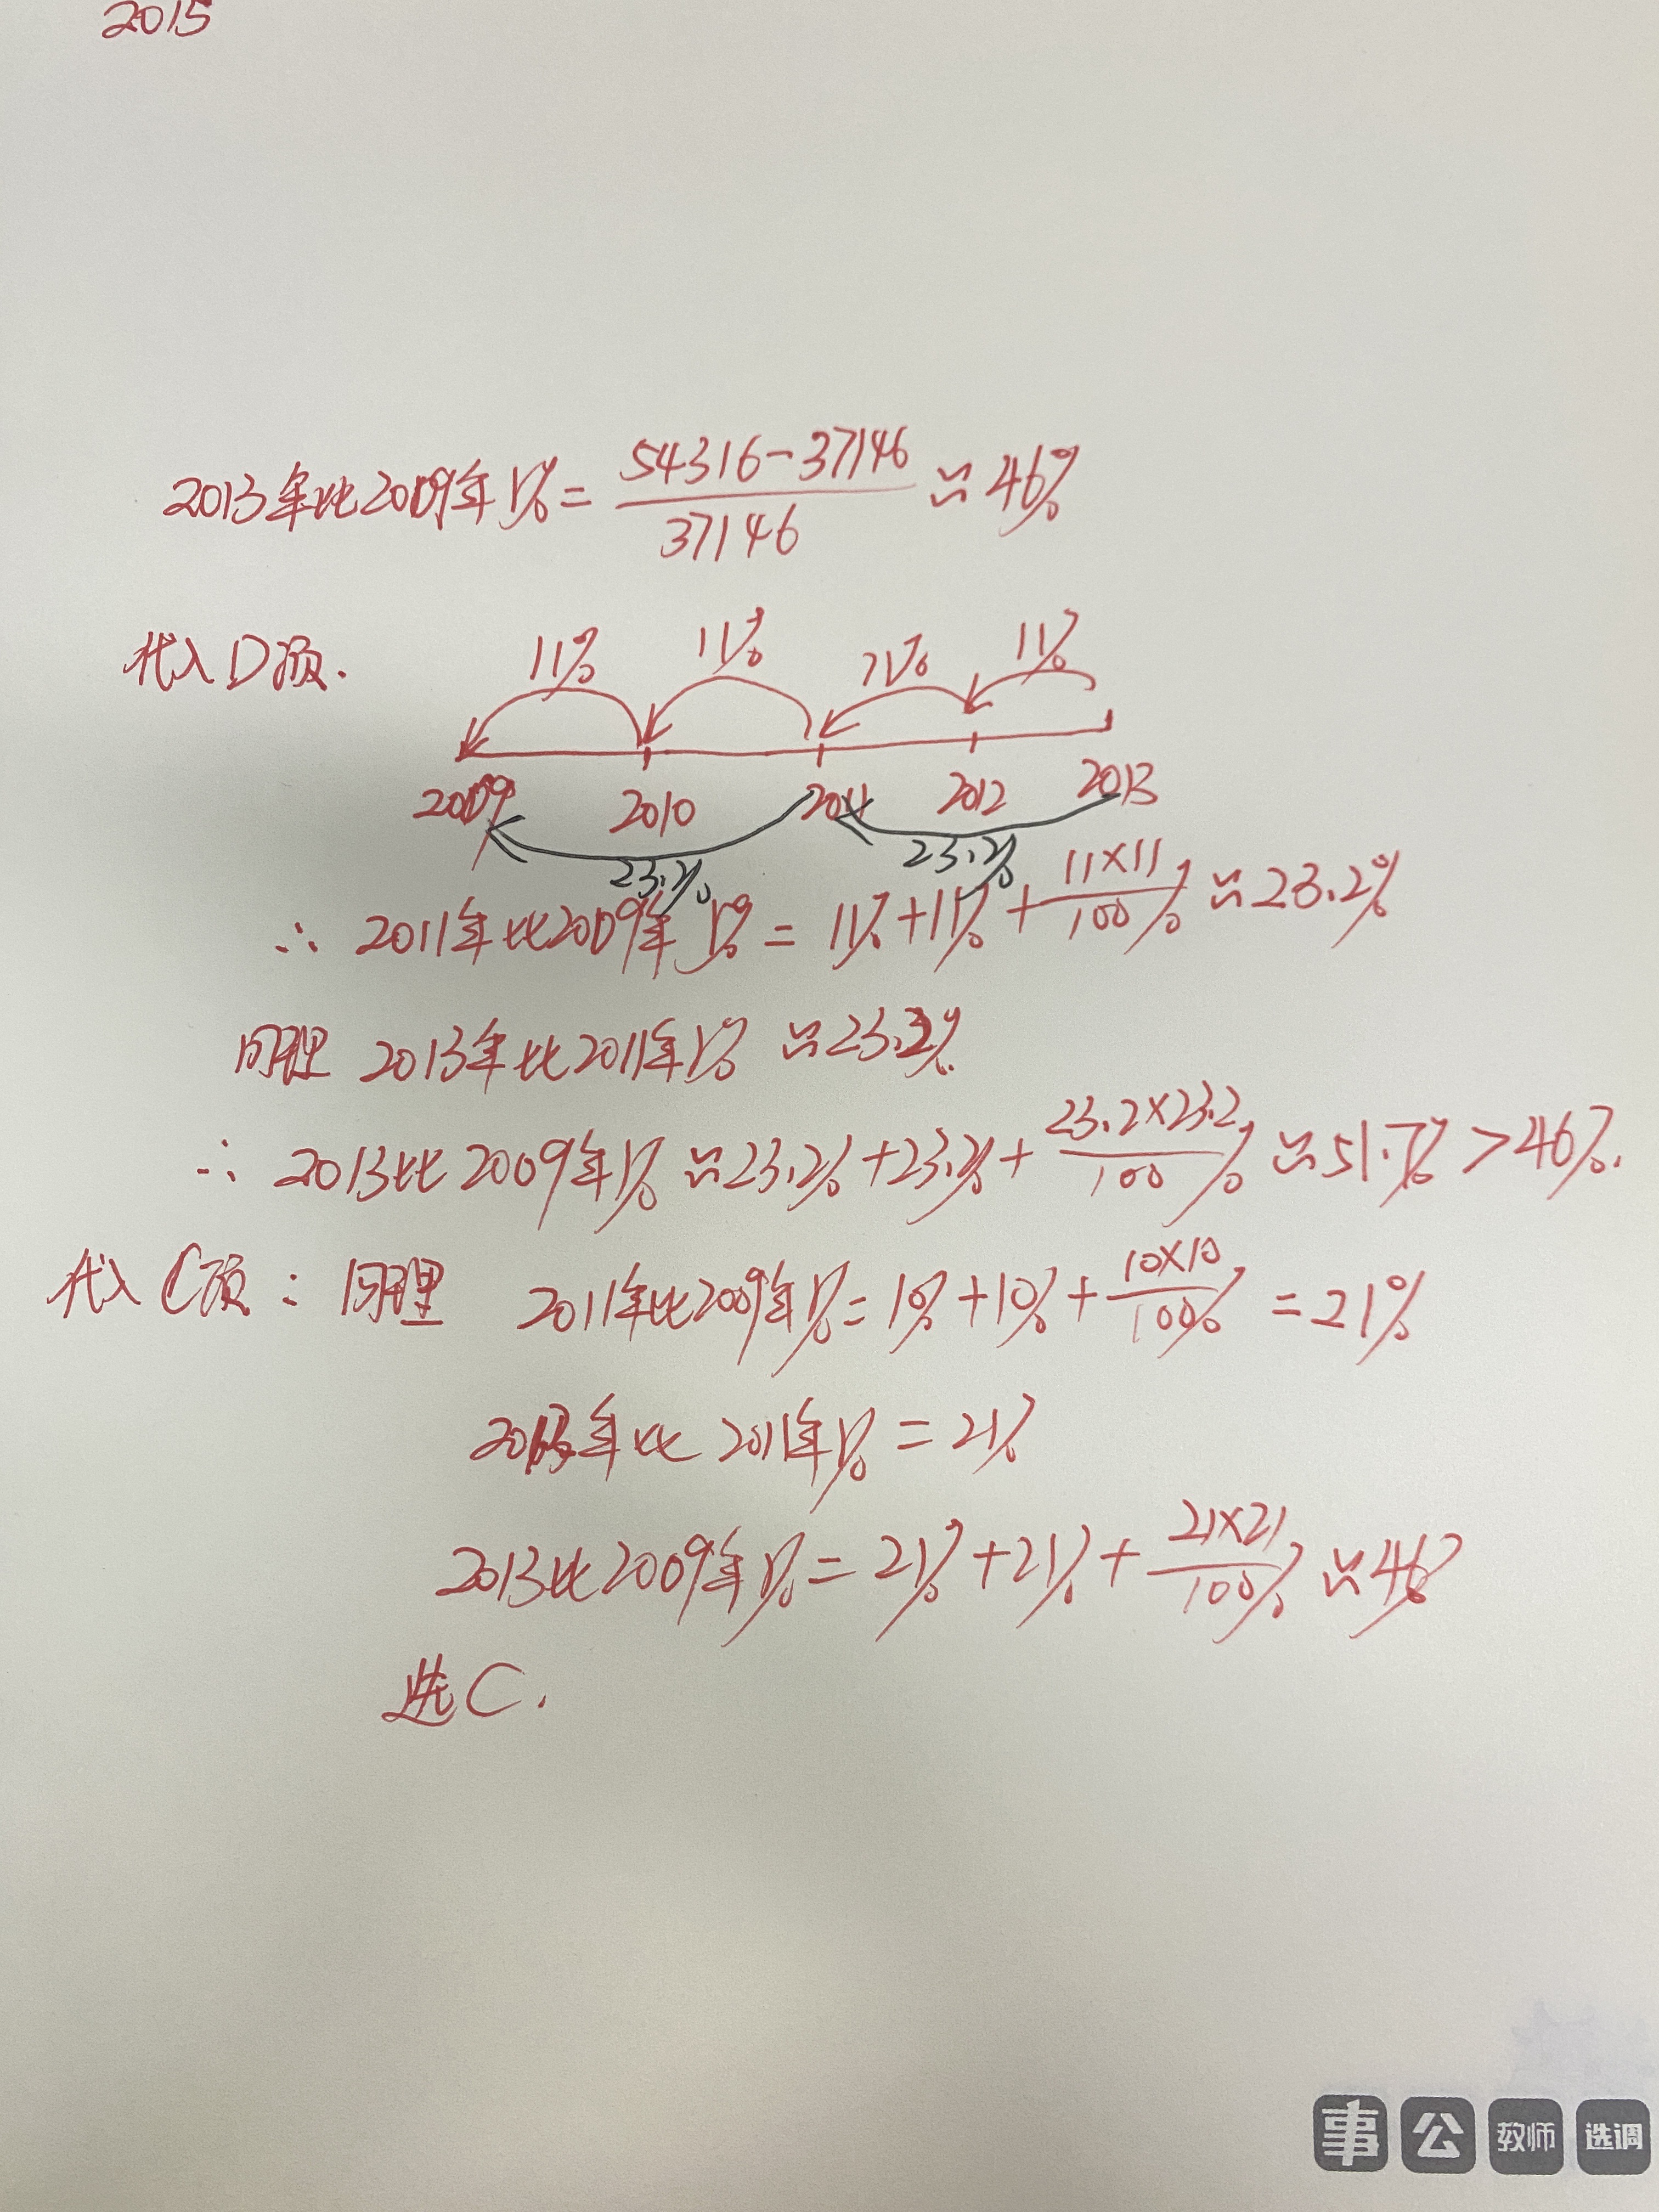 2015
2013年比2009年r% = (54316-37146)/37146 ≈ 46%
代入D项.
11% 11% 11% 11%
2009 2010 2011 2012 2013
23.2% 23.2%
∴ 2011年比2009年r% = 11%+11%+(11×11)/100% ≈ 23.2%
同理 2013年比2011年r% ≈ 23.2%
∴ 2013比2009年r% ≈ 23.2%+23.2%+(23.2×23.2)/100% ≈ 51.7% > 46%.
代入C项: 同理 2011年比2009年r% = 10%+10%+(10×10)/100% = 21%
2013年比2011年r% = 21%
2013比2009年r% = 21%+21%+(21×21)/100% ≈ 46%
选C.
事 公 教师 选调